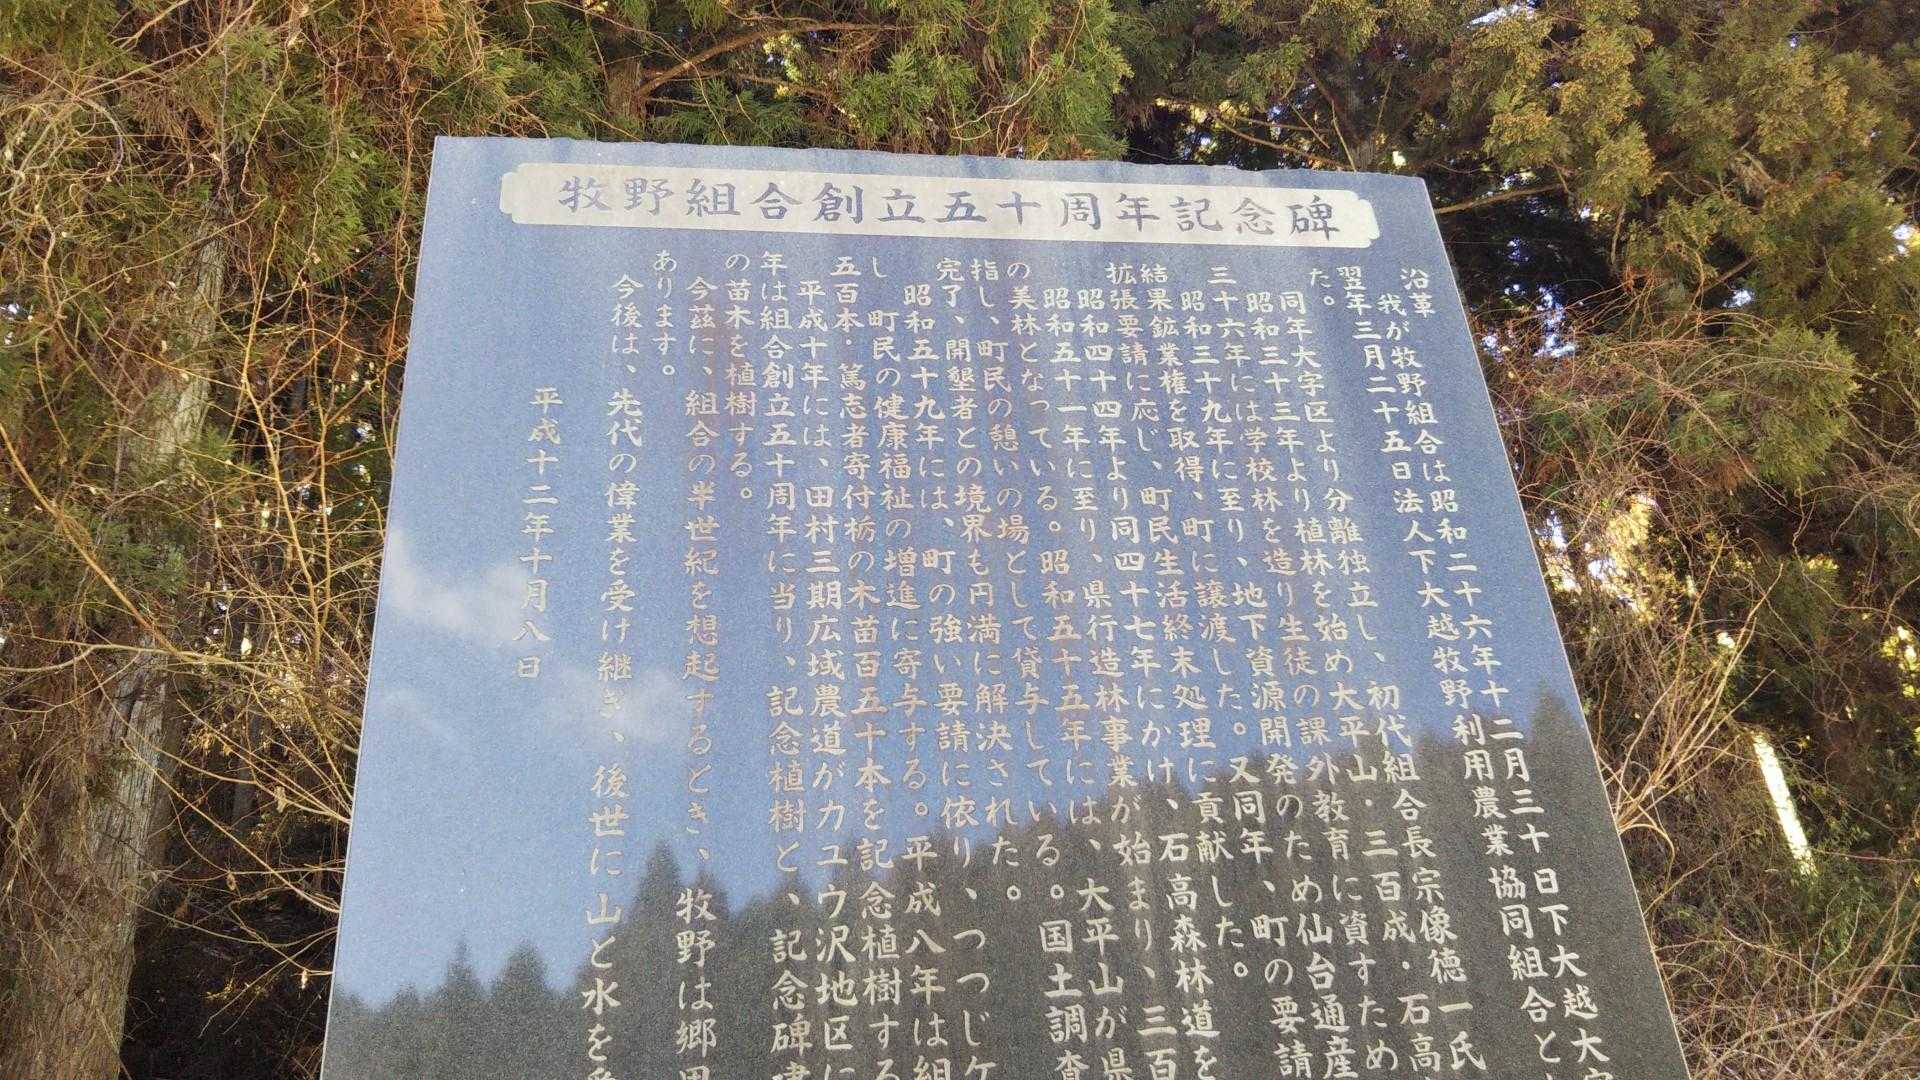 牧野組合創立五十周年記念碑
沿革
我が牧野組合は昭和二十六年十二月三十日下大越大字
翌年三月二十五日法人下大越牧野利用農業協同組合と
た。
同年大字区より分離独立し、初代組合長宗像徳一氏
昭和三十三年より植林を始め大平山・三百成・石高
三十六年には学校林を造り生徒の課外教育に資すため
昭和三十九年に至り、地下資源開発のため仙台通産
結果鉱業権を取得、町に譲渡した。又同年、町の要請
拡張要請に応じ、町民生活終末処理に貢献した。
昭和四十四年より同四十七年にかけ、石高森林道を
昭和五十一年に至り、県行造林事業が始まり、三百
の美林となっている。昭和五十五年には、大平山が県
指し、町民の憩いの場として貸与している。国土調査
完了、開墾者との境界も円満に解決された。
昭和五十九年には、町の強い要請に依り、つつじケ
し町民の健康福祉の増進に寄与する。平成八年は組
五百本・篤志者寄付栃の木苗百五十本を記念植樹する
平成十年には、田村三期広域農道がカユウ沢地区に
年は組合創立五十周年に当り、記念植樹と、記念碑建
の苗木を植樹する。
今茲に、組合の半世紀を想起するとき、牧野は郷
あります。
今後は、先代の偉業を受け継ぎ、後世に山と水を
平成十二年十月八日